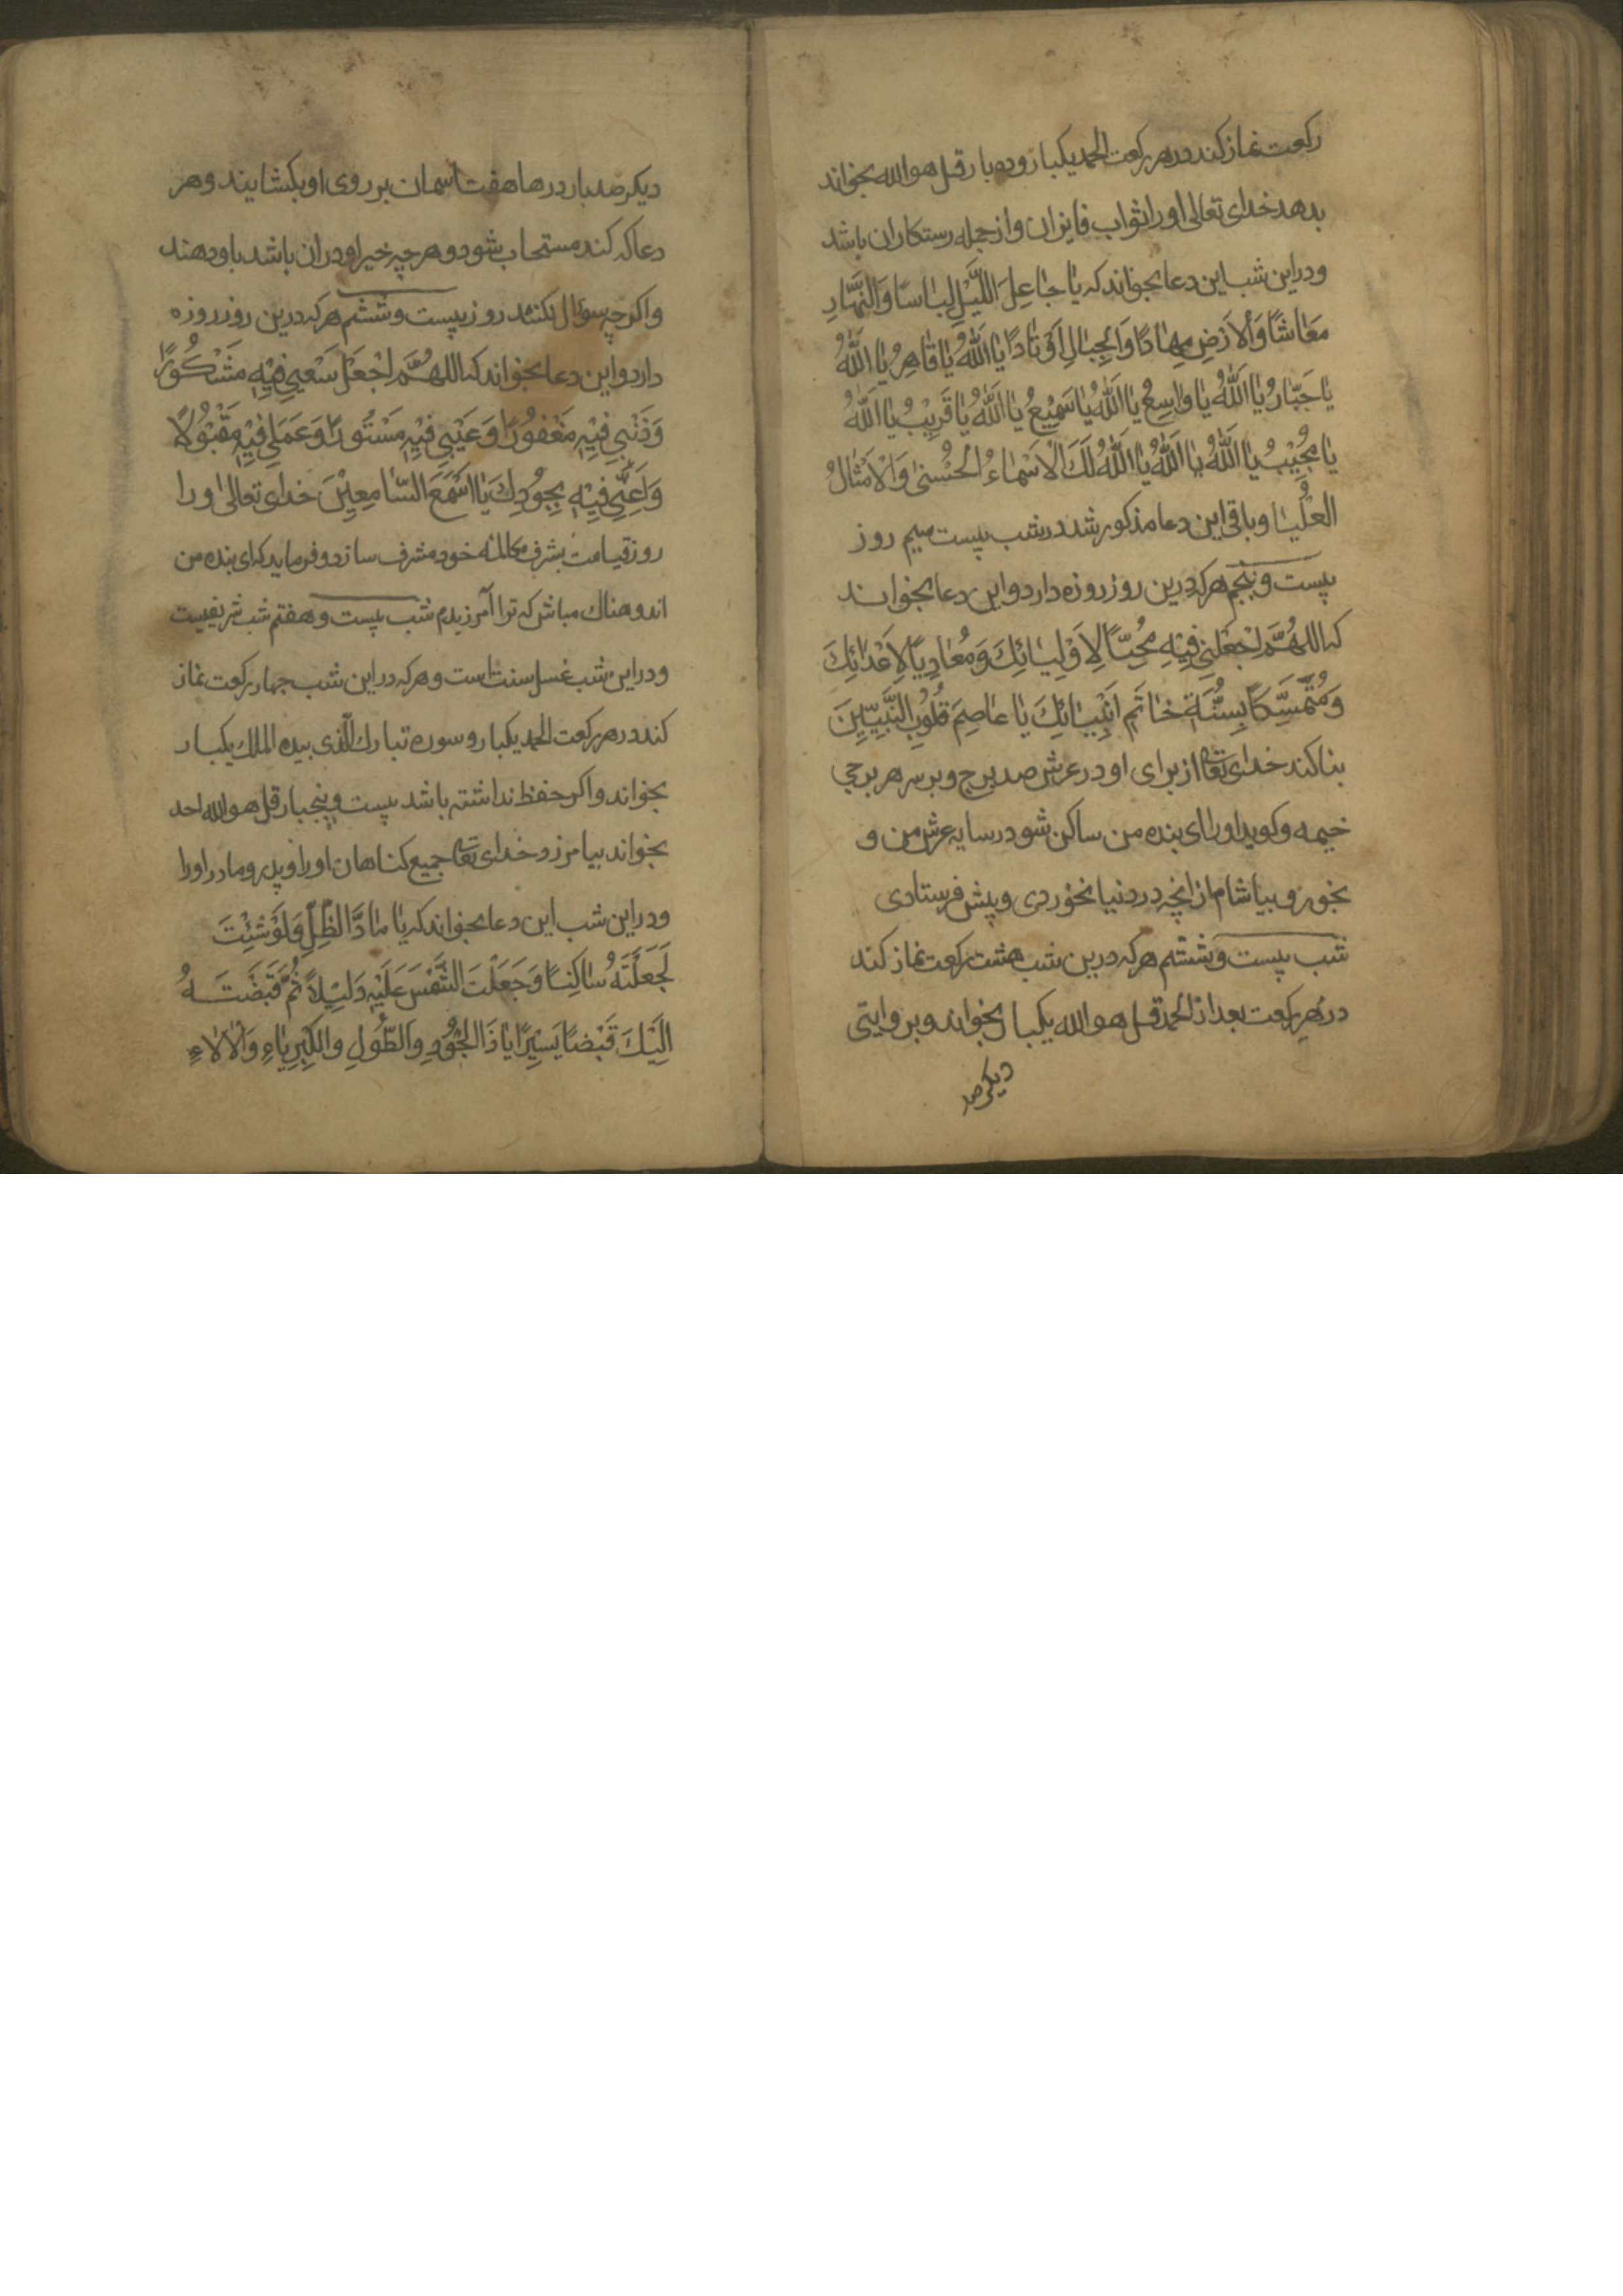 رکعت نماز کند در هر رکعت الحمد یکبار و ده بار قل هو الله بخواند
بدهد خدای تعالی او را ثواب فایزان و از جمله رستکاران باشد
و در این شب این دعا بخواند که یَا جَاعِلَ اللَّیْلِ لِبَاسًا وَالنَّهَارِ
مَعَاشًا وَالاَرْضِ مِهَادًا وَالْجِبَالِ اَوْتَادًا یَا اَللّٰهُ یَا قَاهِرُ یَا اَللّٰهُ
یَا جَبَّارُ یَا اَللّٰهُ یَا وَاسِعُ یَا اَللّٰهُ یَا سَمِیْعُ یَا اَللّٰهُ یَا قَرِیْبُ یَا اَللّٰهُ
یَا مُجِیْبُ یَا اَللّٰهُ یَا اَللّٰهُ یَا اَللّٰهُ لَكَ الْاَسْمَاءُ الْحُسْنٰی وَالْاَمْثَالُ
الْعُلْیَا و باقی این دعا مذکور شد در شب بیست میم روز
بیست و پنجم هر که درین روز روزه دارد و این دعا بخواند
که اللهُمَّ اجْعَلْنِی فِیْهِ مُحِبًّا لِاَوْلِیَائِكَ وَمُعَادِیًا لِاَعْدَائِكَ
وَمُتَمَسِّكًا بِسُنَّةِ خَاتَمِ اَنْبِیَائِكَ یَا عَاصِمَ قُلُوْبِ النَّبِیِّیْنَ
بنا کند خدای تعا از برای او در عرش صد برج و بر سر هر برجی
خیمه و کوید او را ای بنده من ساکن شو در سایه عرش من و
بخور و بیاشام از انچه در دنیا نخوردی و پیش فرستادی
شب بیست و ششم هر که درین شب هشت رکعت نماز کند
در هر رکعت بعد از الحمد قل هو الله یکبار بخواند و بروایتی
دیکر صد
دیکر صد بار درها هفت اسمان بر روی او بکشایند و هر
دعا که کند مستجاب شود و هر چه خیر او در ان باشد باو دهند
و اکر چه سؤال نکند روز بیست و ششم هر که درین روز روزه
دارد و این دعا بخواند که اللهُمَّ اجْعَلْ سَعْیِی فِیْهِ مَشْكُوْرًا
وَذَنْبِی فِیْهِ مَغْفُوْرًا وَعَیْبِی فِیْهِ مَسْتُوْرًا وَعَمَلِی فِیْهِ مَقْبُوْلًا
وَاَعِنِّی فِیْهِ بِجُوْدِكَ یَا اَسْمَعَ السَّامِعِیْنَ خدای تعالی او را
روز قیامت بشرف مکالمه خود مشرف سازد و فرماید که ای بنده من
اندوهناك مباش که ترا آمرزیدم شب بیست و هفتم شب شریفیست
و در این شب غسل سنت است و هر که در این شب چهار رکعت نماز
کند در هر رکعت الحمد یکبار و سوره تبارك الّذی بیده الملك یکبار
بخواند و اکر حفظ نداشته باشد بیست و پنجبار قل هو الله احد
بخواند بیامرزد خدای تعا جمیع کناهان او را و پدر و مادر او را
و در این شب این دعا بخواند که یَا مَادَّ الظِّلِّ وَلَوْ شِئْتَ
لَجَعَلْتَهُ سَاكِنًا وَجَعَلْتَ الشَّمْسَ عَلَیْهِ دَلِیْلًا ثُمَّ قَبَضْتَهُ
اِلَیْكَ قَبْضًا یَسِیْرًا یَا ذَا الْجُوْدِ وَالطَّوْلِ وَالْكِبْرِیَاءِ وَالْاٰلَاءِ